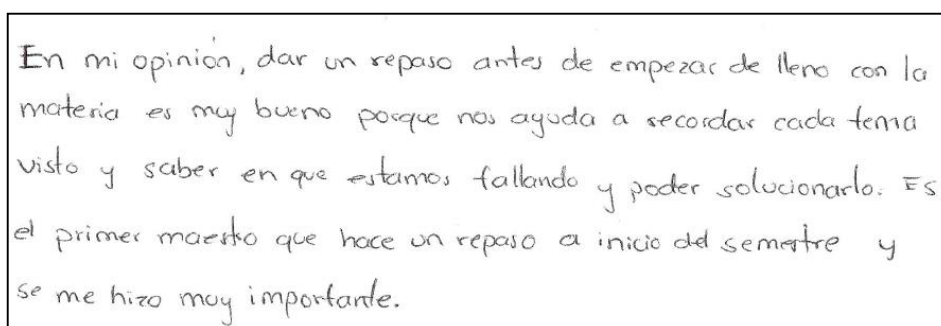 En mi opinión, dar un repaso antes de empezar de lleno con la
materia es muy bueno porque nos ayuda a recordar cada tema
visto y saber en que estamos fallando y poder solucionarlo. Es
el primer maestro que hace un repaso a inicio del semestre y
se me hizo muy importante.